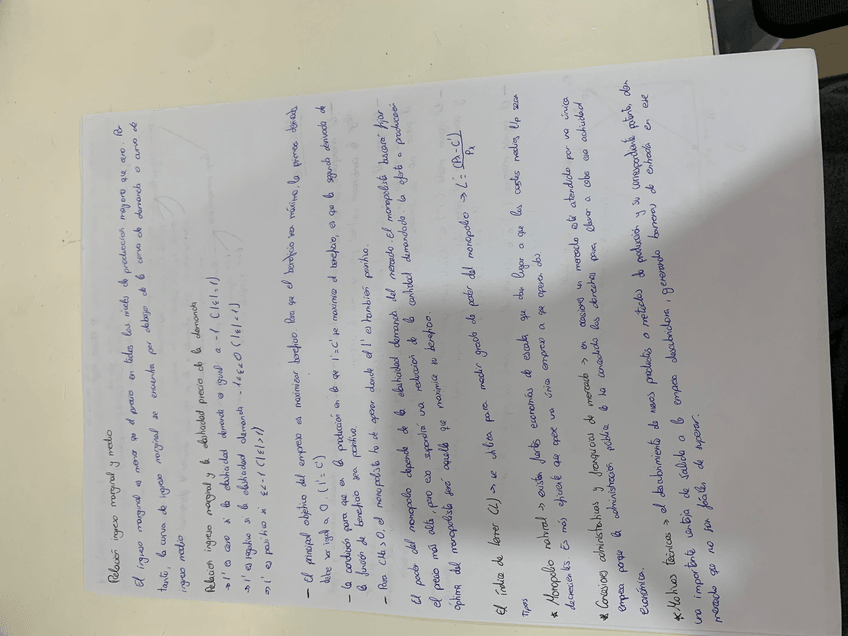 Relación ingreso marginal y medio
El ingreso marginal es menor que el precio en todos los niveles de producción mayores que cero. Por
tanto, la curva de ingreso marginal se encuentra por debajo de la curva de demanda o curva de
ingreso medio
Relación ingreso marginal y la elasticidad precio de la demanda
→ I' es cero si la elasticidad demanda es igual a -1 (|ε|=1)
→ I' es negativo si la elasticidad demanda -1<ε≤0 (|ε|<1)
→ I' es positivo si ε<-1 (|ε|>1)
- El principal objetivo del empresa es maximizar beneficio. Para que el beneficio sea máximo, la primera derivada
debe ser igual a 0. (I'=C')
- La condición para que en la producción en la que I'=C' se maximice el beneficio, es que la segunda derivada de
la función de beneficio sea positiva.
- Para CMg>0, el monopolista ha de operar donde el I' es también positivo.
El poder del monopolio depende de la elasticidad demanda del mercado. El monopolista buscará fijar
el precio más alto, pero eso supondría una reducción de la cantidad demandada. La oferta o producción
óptima del monopolista será aquella que maximice su beneficio.
El índice de Lerner (L) → se utiliza para medir grado de poder del monopolio → L = (Px - C') / Px
Tipos
* Monopolio natural → existen fuertes economías de escala que dan lugar a que los costes medios l/p sean
decrecientes. Es más eficiente que opere una única empresa a que operen dos
* Concesiones administrativas y franquicias de mercado → en ocasiones un mercado está atendido por una única
empresa porque la administración pública le ha concedido los derechos para llevar a cabo esa actividad
económica.
* Motivos técnicos → el descubrimiento de nuevos productos o métodos de producción y su correspondiente patente, dan
una importante ventaja de salida a la empresa descubridora, generando barreras de entrada en ese
mercado que no son fáciles de superar.